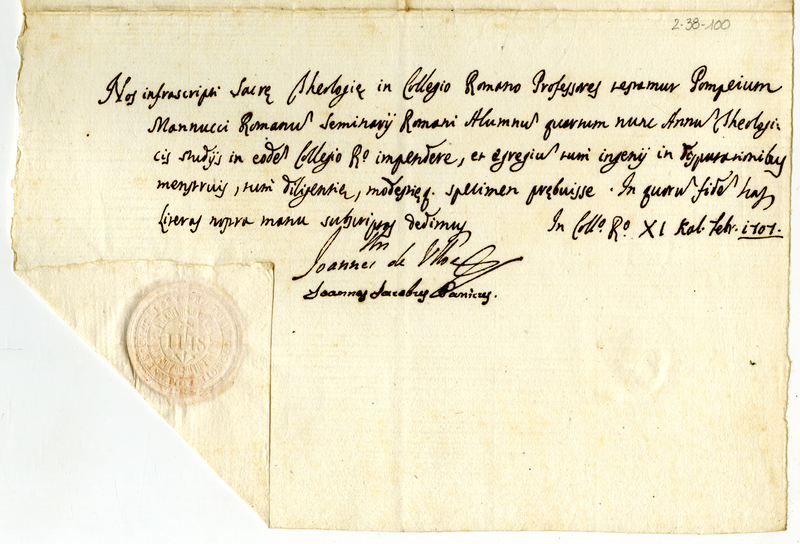 2-38-100
Nos infrascripti Sacrę Theologię in Collegio Romano Professores testamur Pompeium
Mannucci Romanū Seminarij Romani Alumnū quartum nunc Annū Theologi-
cis studijs in eodē Collegio Ro. impendere, et egregiū tum ingenij in disputationibus
menstruis, tum diligentię, modestięq. specimen prębuisse. In quorū fidē has
literas nostra manu subscriptas dedimus In Collo. Ro. XI Kal. Febr. 1707.
Joannes de
Joannes Jacobus Panicus.
IHS